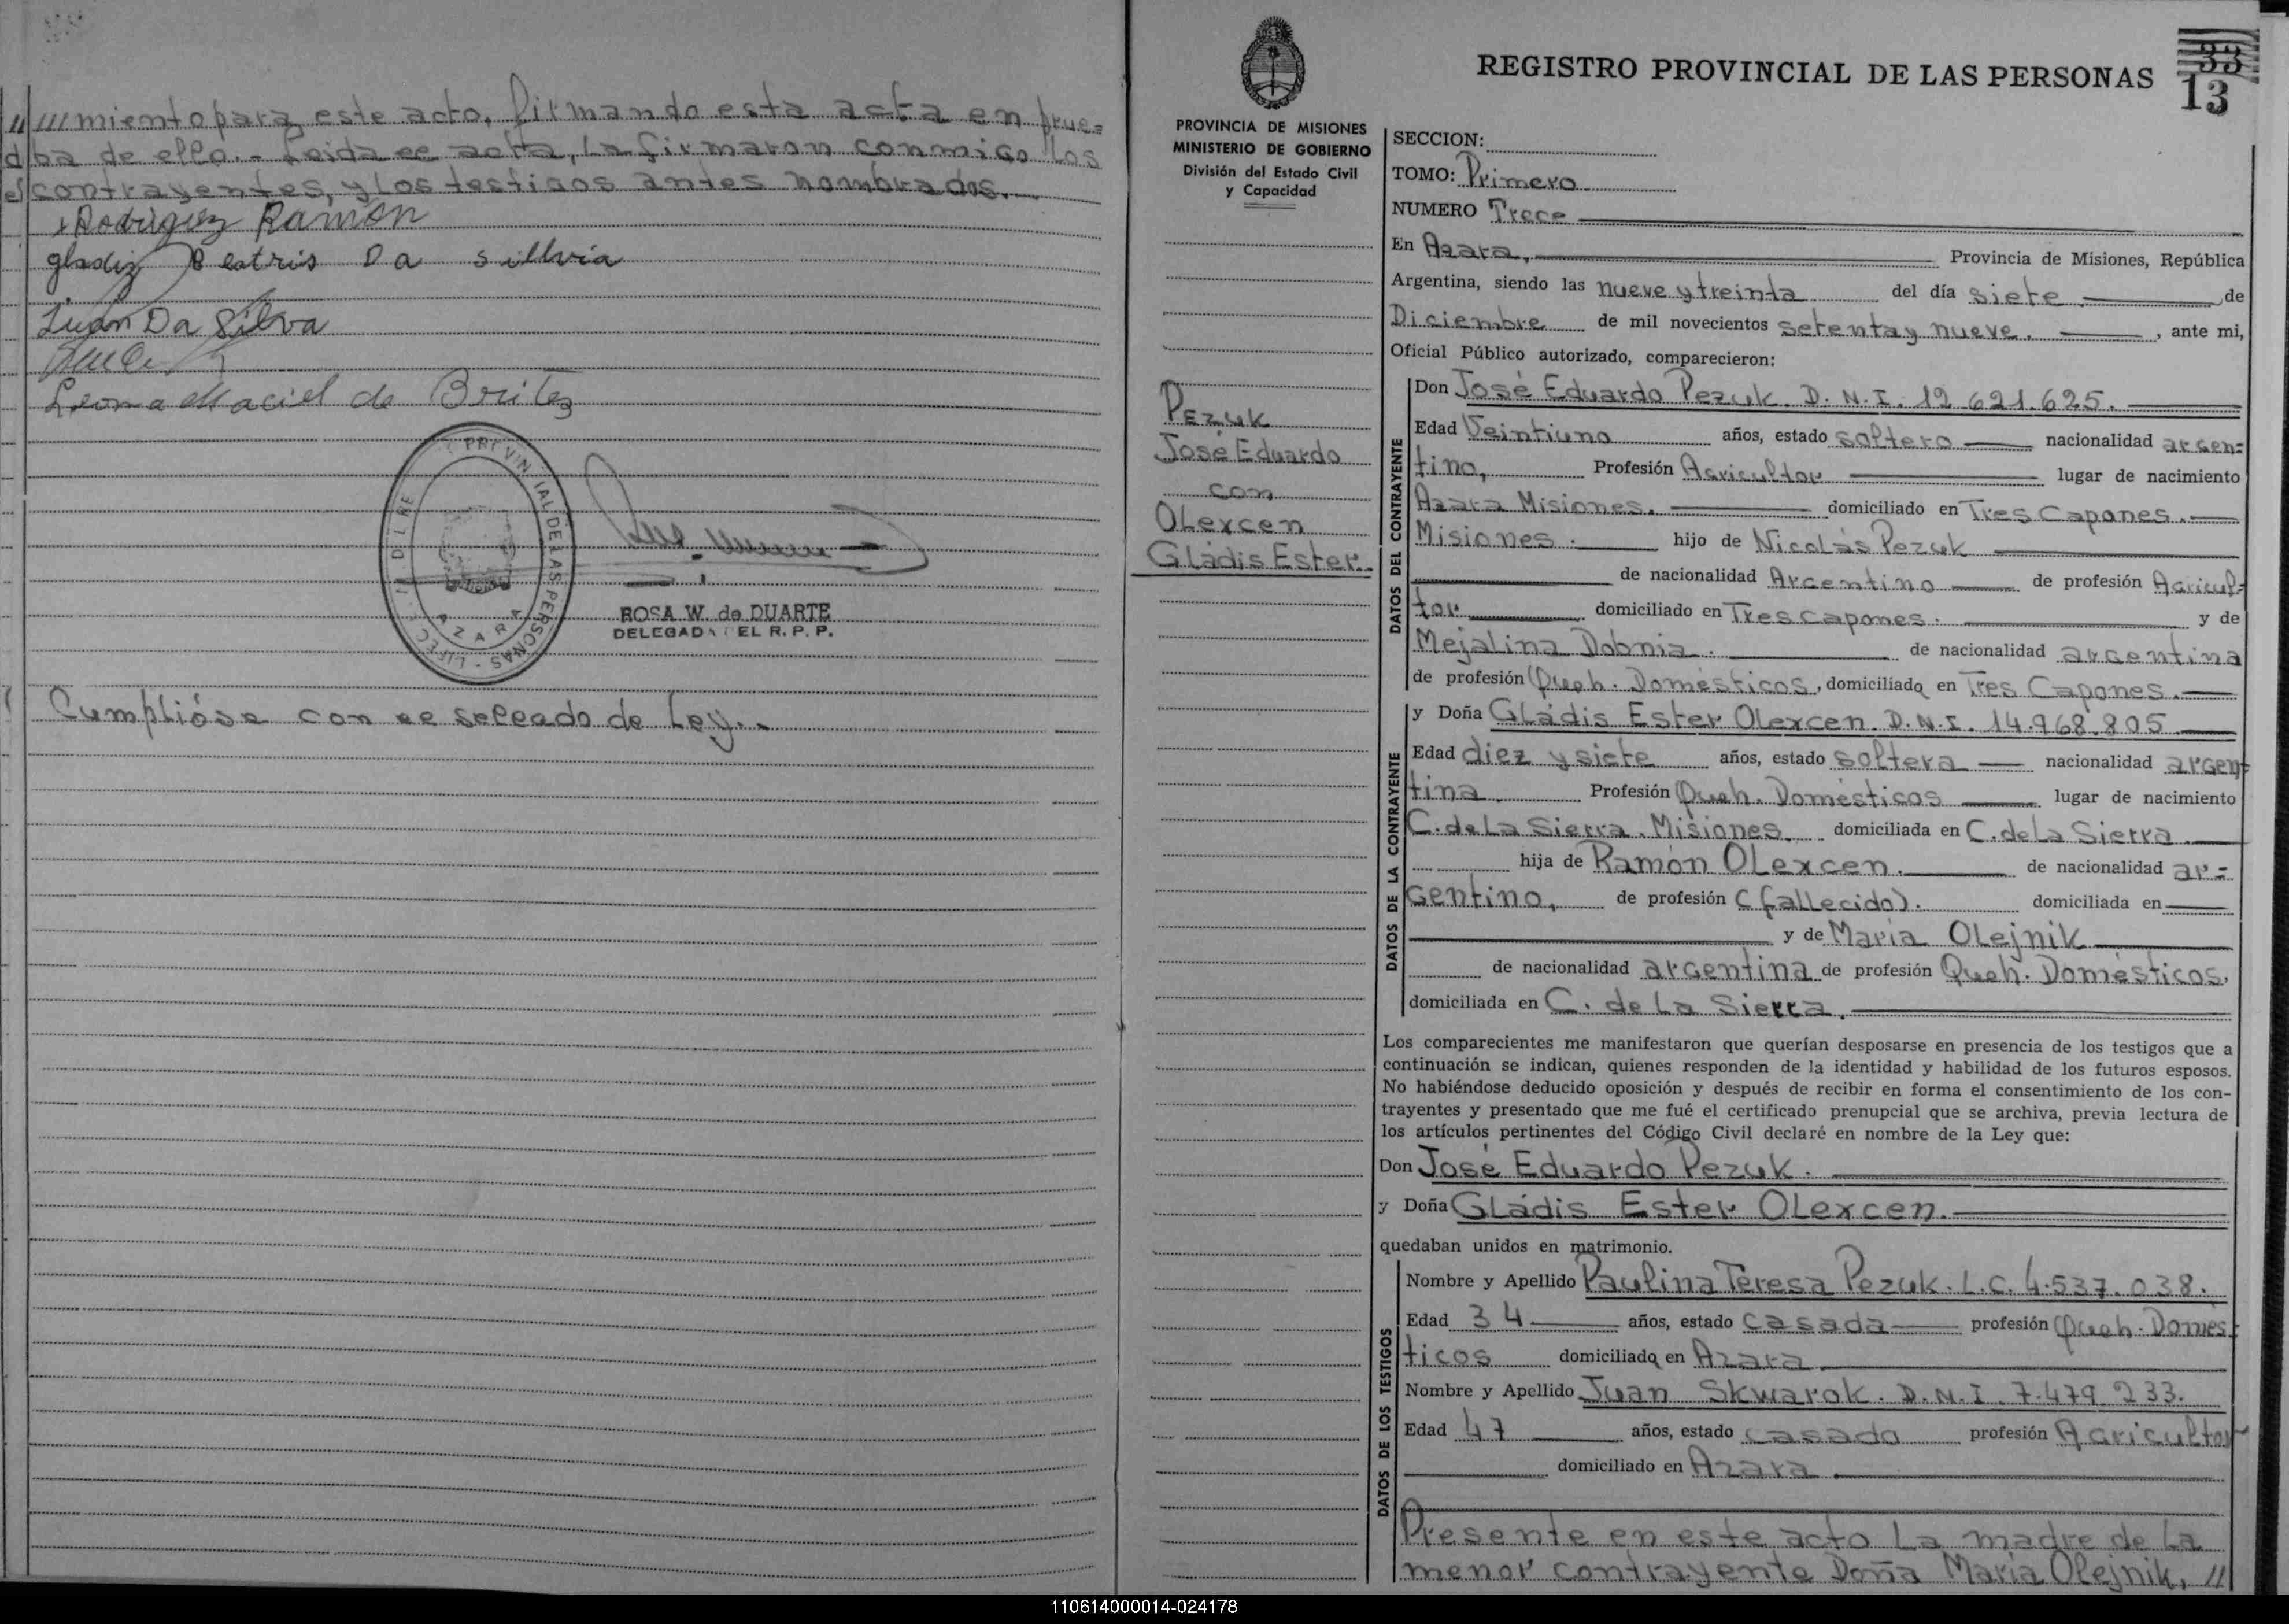 //miento para este acto, firmando esta acta en prue=
ba de ello.- Leida el acta, la firmaron conmigo los
contrayentes, y los testigos antes nombrados.
Rodriguez Ramón
gladiz Beatris Da sillvia
Juan Da Silva
Leona Maciel de Britez
AZARA
ROSA W. de DUARTE
DELEGADA DEL R. P. P.
Cumplióse con el sellado de Ley.-
REGISTRO PROVINCIAL DE LAS PERSONAS
33
13
PROVINCIA DE MISIONES
MINISTERIO DE GOBIERNO
División del Estado Civil
y Capacidad
Pezuk
José Eduardo
con
Olexcen
Gládis Ester.
SECCION:
TOMO: Primero
NUMERO Trece
En Azara, Provincia de Misiones, República
Argentina, siendo las nueve y treinta del día siete de
Diciembre de mil novecientos setenta y nueve. , ante mi,
Oficial Público autorizado, comparecieron:
DATOS DEL CONTRAYENTE
Don José Eduardo Pezuk. D.N.I. 12.621.625.
Edad Veintiuno años, estado soltero nacionalidad argen=
tino, Profesión Agricultor lugar de nacimiento
Azara Misiones. domiciliado en Tres Capones.
Misiones. hijo de Nicolás Pezuk
de nacionalidad Argentino de profesión Agricul=
tor domiciliado en Tres Capones. y de
Mejalina Dobnia. de nacionalidad argentina
de profesión Queh. Domésticos, domiciliada en Tres Capones.
DATOS DE LA CONTRAYENTE
y Doña Gládis Ester Olexcen. D.N.I. 14.968.805
Edad diez y siete años, estado soltera nacionalidad argen=
tina. Profesión Queh. Domésticos lugar de nacimiento
C. de La Sierra. Misiones domiciliada en C. de La Sierra.
hija de Ramón Olexcen. de nacionalidad ar=
gentino, de profesión (fallecido). domiciliada en
y de María Olejnik
de nacionalidad argentina de profesión Queh. Domésticos,
domiciliada en C. de La Sierra.
Los comparecientes me manifestaron que querían desposarse en presencia de los testigos que a
continuación se indican, quienes responden de la identidad y habilidad de los futuros esposos.
No habiéndose deducido oposición y después de recibir en forma el consentimiento de los con-
trayentes y presentado que me fué el certificado prenupcial que se archiva, previa lectura de
los artículos pertinentes del Código Civil declaré en nombre de la Ley que:
Don José Eduardo Pezuk.
y Doña Gládis Ester Olexcen.
quedaban unidos en matrimonio.
DATOS DE LOS TESTIGOS
Nombre y Apellido Paulina Teresa Pezuk. L.C. 4.537.038.
Edad 34 años, estado casada profesión Queh. Domés=
ticos domiciliada en Azara
Nombre y Apellido Juan Skwarok. D.N.I. 7.479.233.
Edad 47 años, estado casado profesión Agricultor
domiciliado en Azara
Presente en este acto La madre de La
menor contrayente Doña María Olejnik, //
110614000014-024178